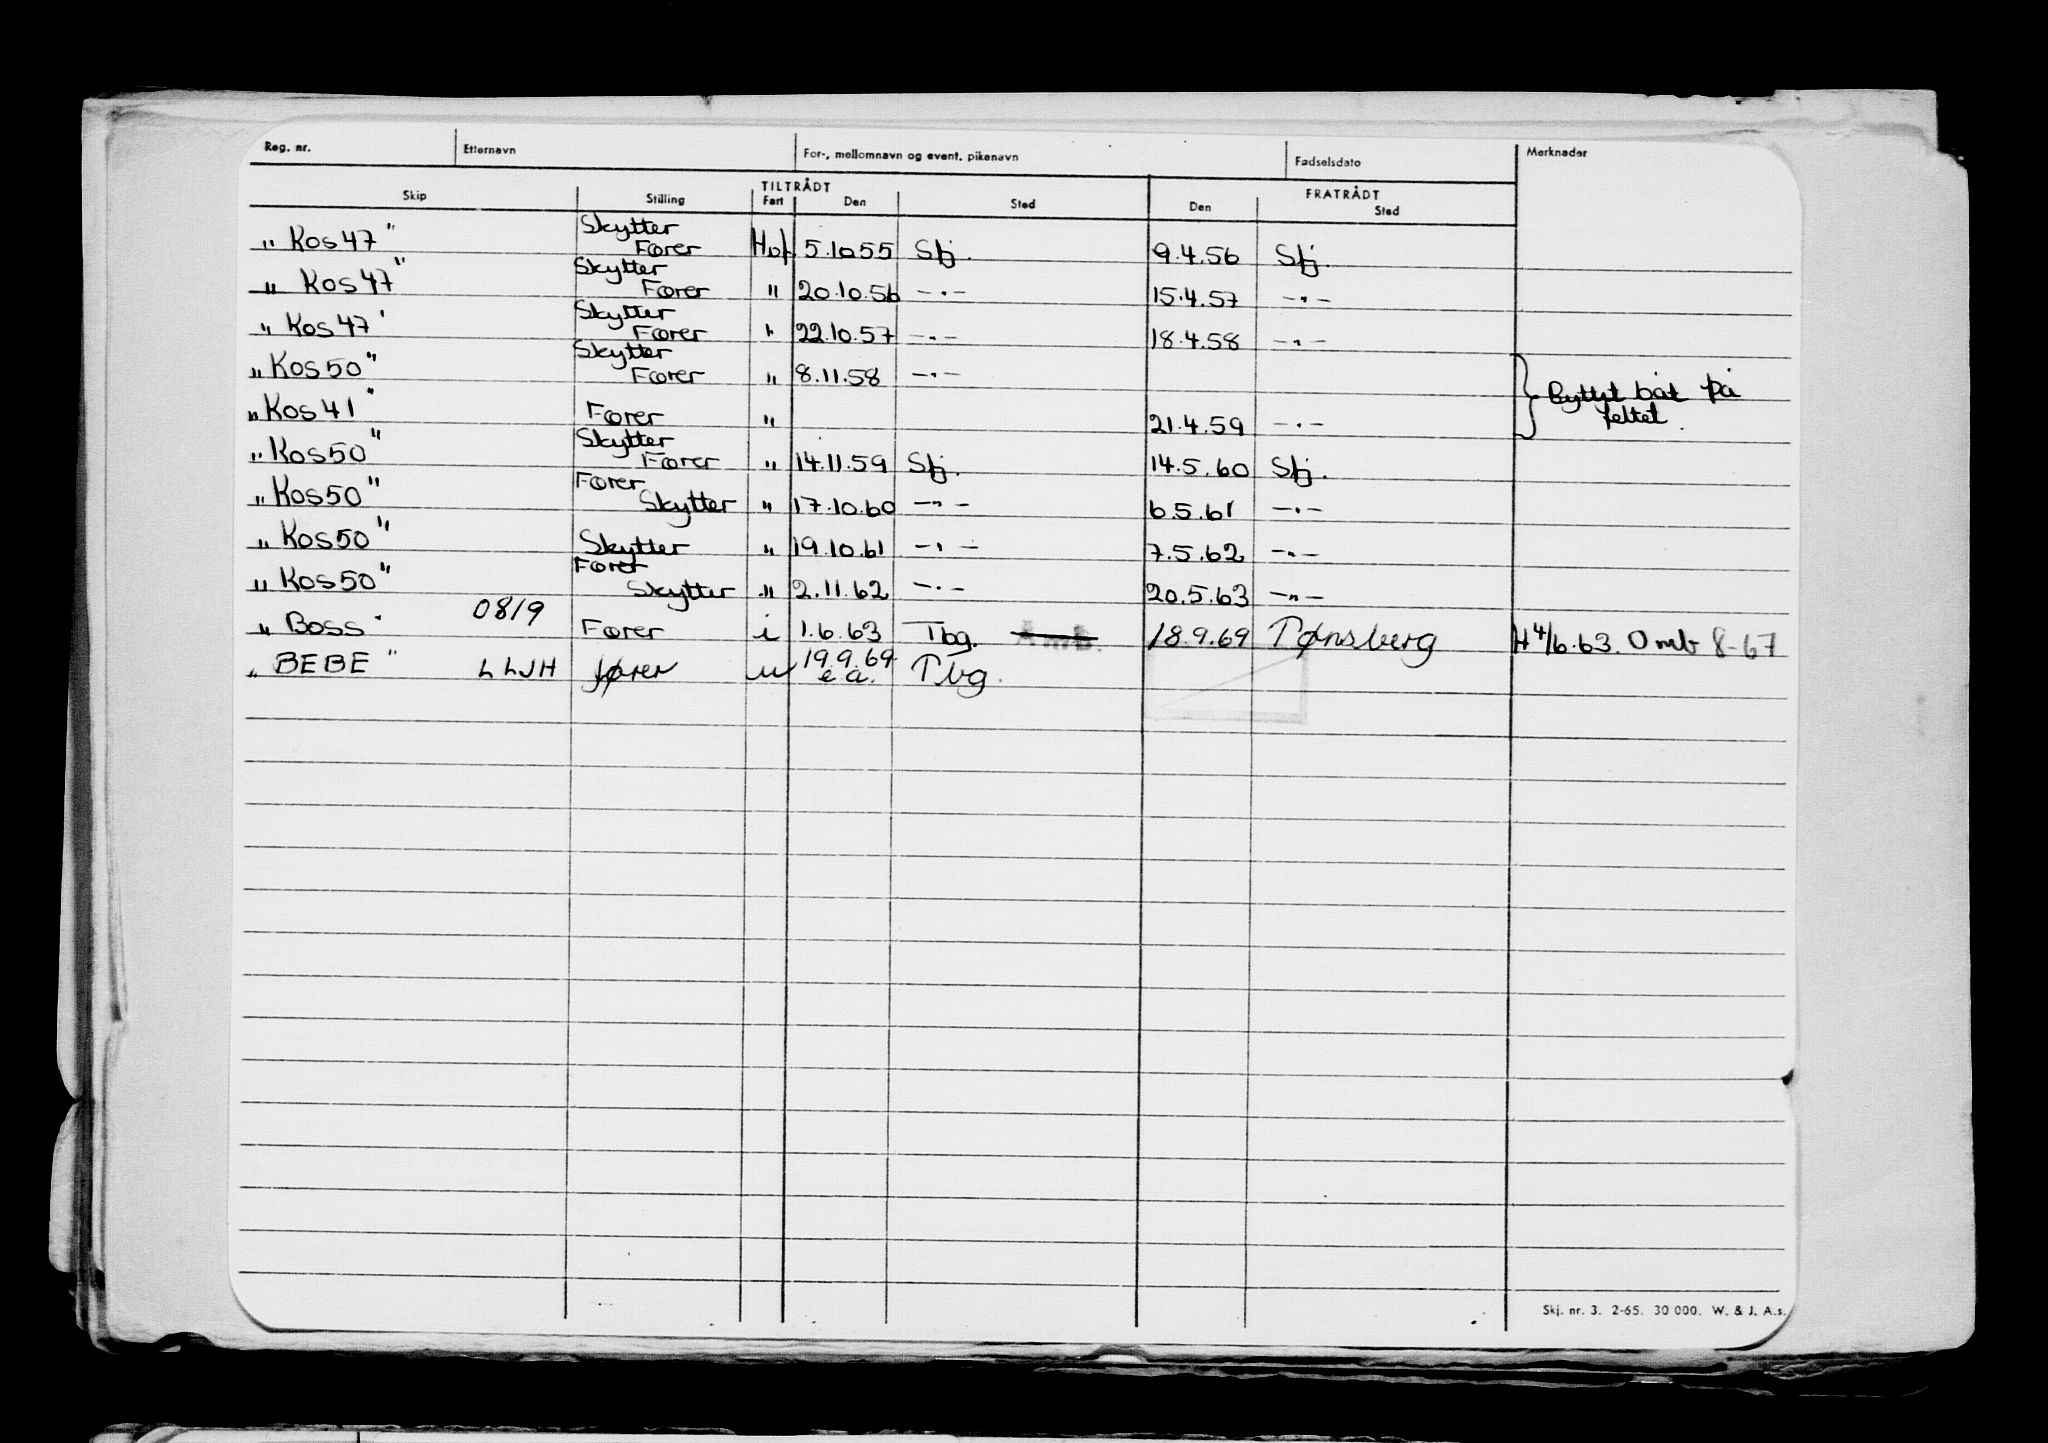 Reg. nr. Etternavn For-, mellomnavn og event. pikenavn Fødselsdato Merknader
TILTRÅDT FRATRÅDT
Skip Stilling Fart Den Sted Den Sted
" Kos 47 " Skytter Fører 5.10.55 Sfj. 9.4.56 Sfj.
" Kos 47 " Skytter Fører " 20.10.56 -"- 15.4.57 -"-
" Kos 47 ' Skytter Fører " 22.10.57 -"- 18.4.58 -"-
" Kos 50 " Skytter Fører " 8.11.58 -"-
" Kos 41 " Fører " 21.4.59 -"- } Byttet båt på
feltet.
" Kos 50 " Skytter Fører " 14.11.59 Sfj. 14.5.60 Sfj.
" Kos 50 " Fører Skytter " 17.10.60 -"- 6.5.61 -"-
" Kos 50 " Skytter " 19.10.61 -"- 7.5.62 -"-
" Kos 50 " Fører Skytter " 2.11.62 -"- 20.5.63 -"-
" Boss " 0819 Fører i 1.6.63 Tbg. 18.9.69 Tønsberg H 4/6.63. Omb 8-67
" BEBE " LLJH fører u 19.9.69 e a. Tbg.
Skj. nr. 3. 2-65. 30 000. W. & J. A.s.